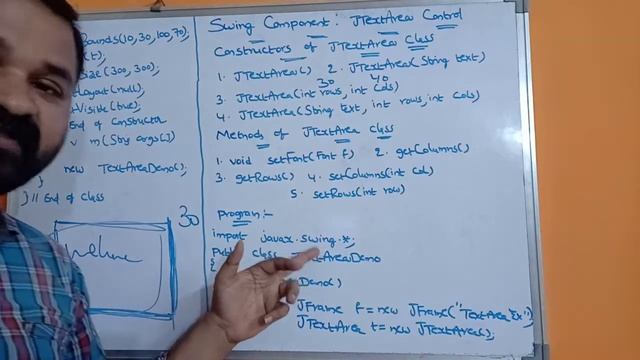 Bounds(10,30,100,70);
(t);
Size(300,300);
Layout(null);
Visible(true);
End of Constructor
v m(Strg args[])
new TextAreaDemo();
}
} // End of class
30
Swing Component: JTextArea Control
Constructors of JTextArea class
1. JTextArea() 2. JTextArea(String text)
30 40
3. JTextArea(int rows, int cols)
4. JTextArea(String text, int rows, int cols)
Methods of JTextArea class
1. void setFont(Font f) 2. getColumns()
3. getRows() 4. setColumns(int col)
5. setRows(int row)
Program:-
import javax.swing.*;
class TextAreaDemo
{
Demo()
JFrame f = new JFrame("TextArea Ex");
JTextArea t = new JTextArea();